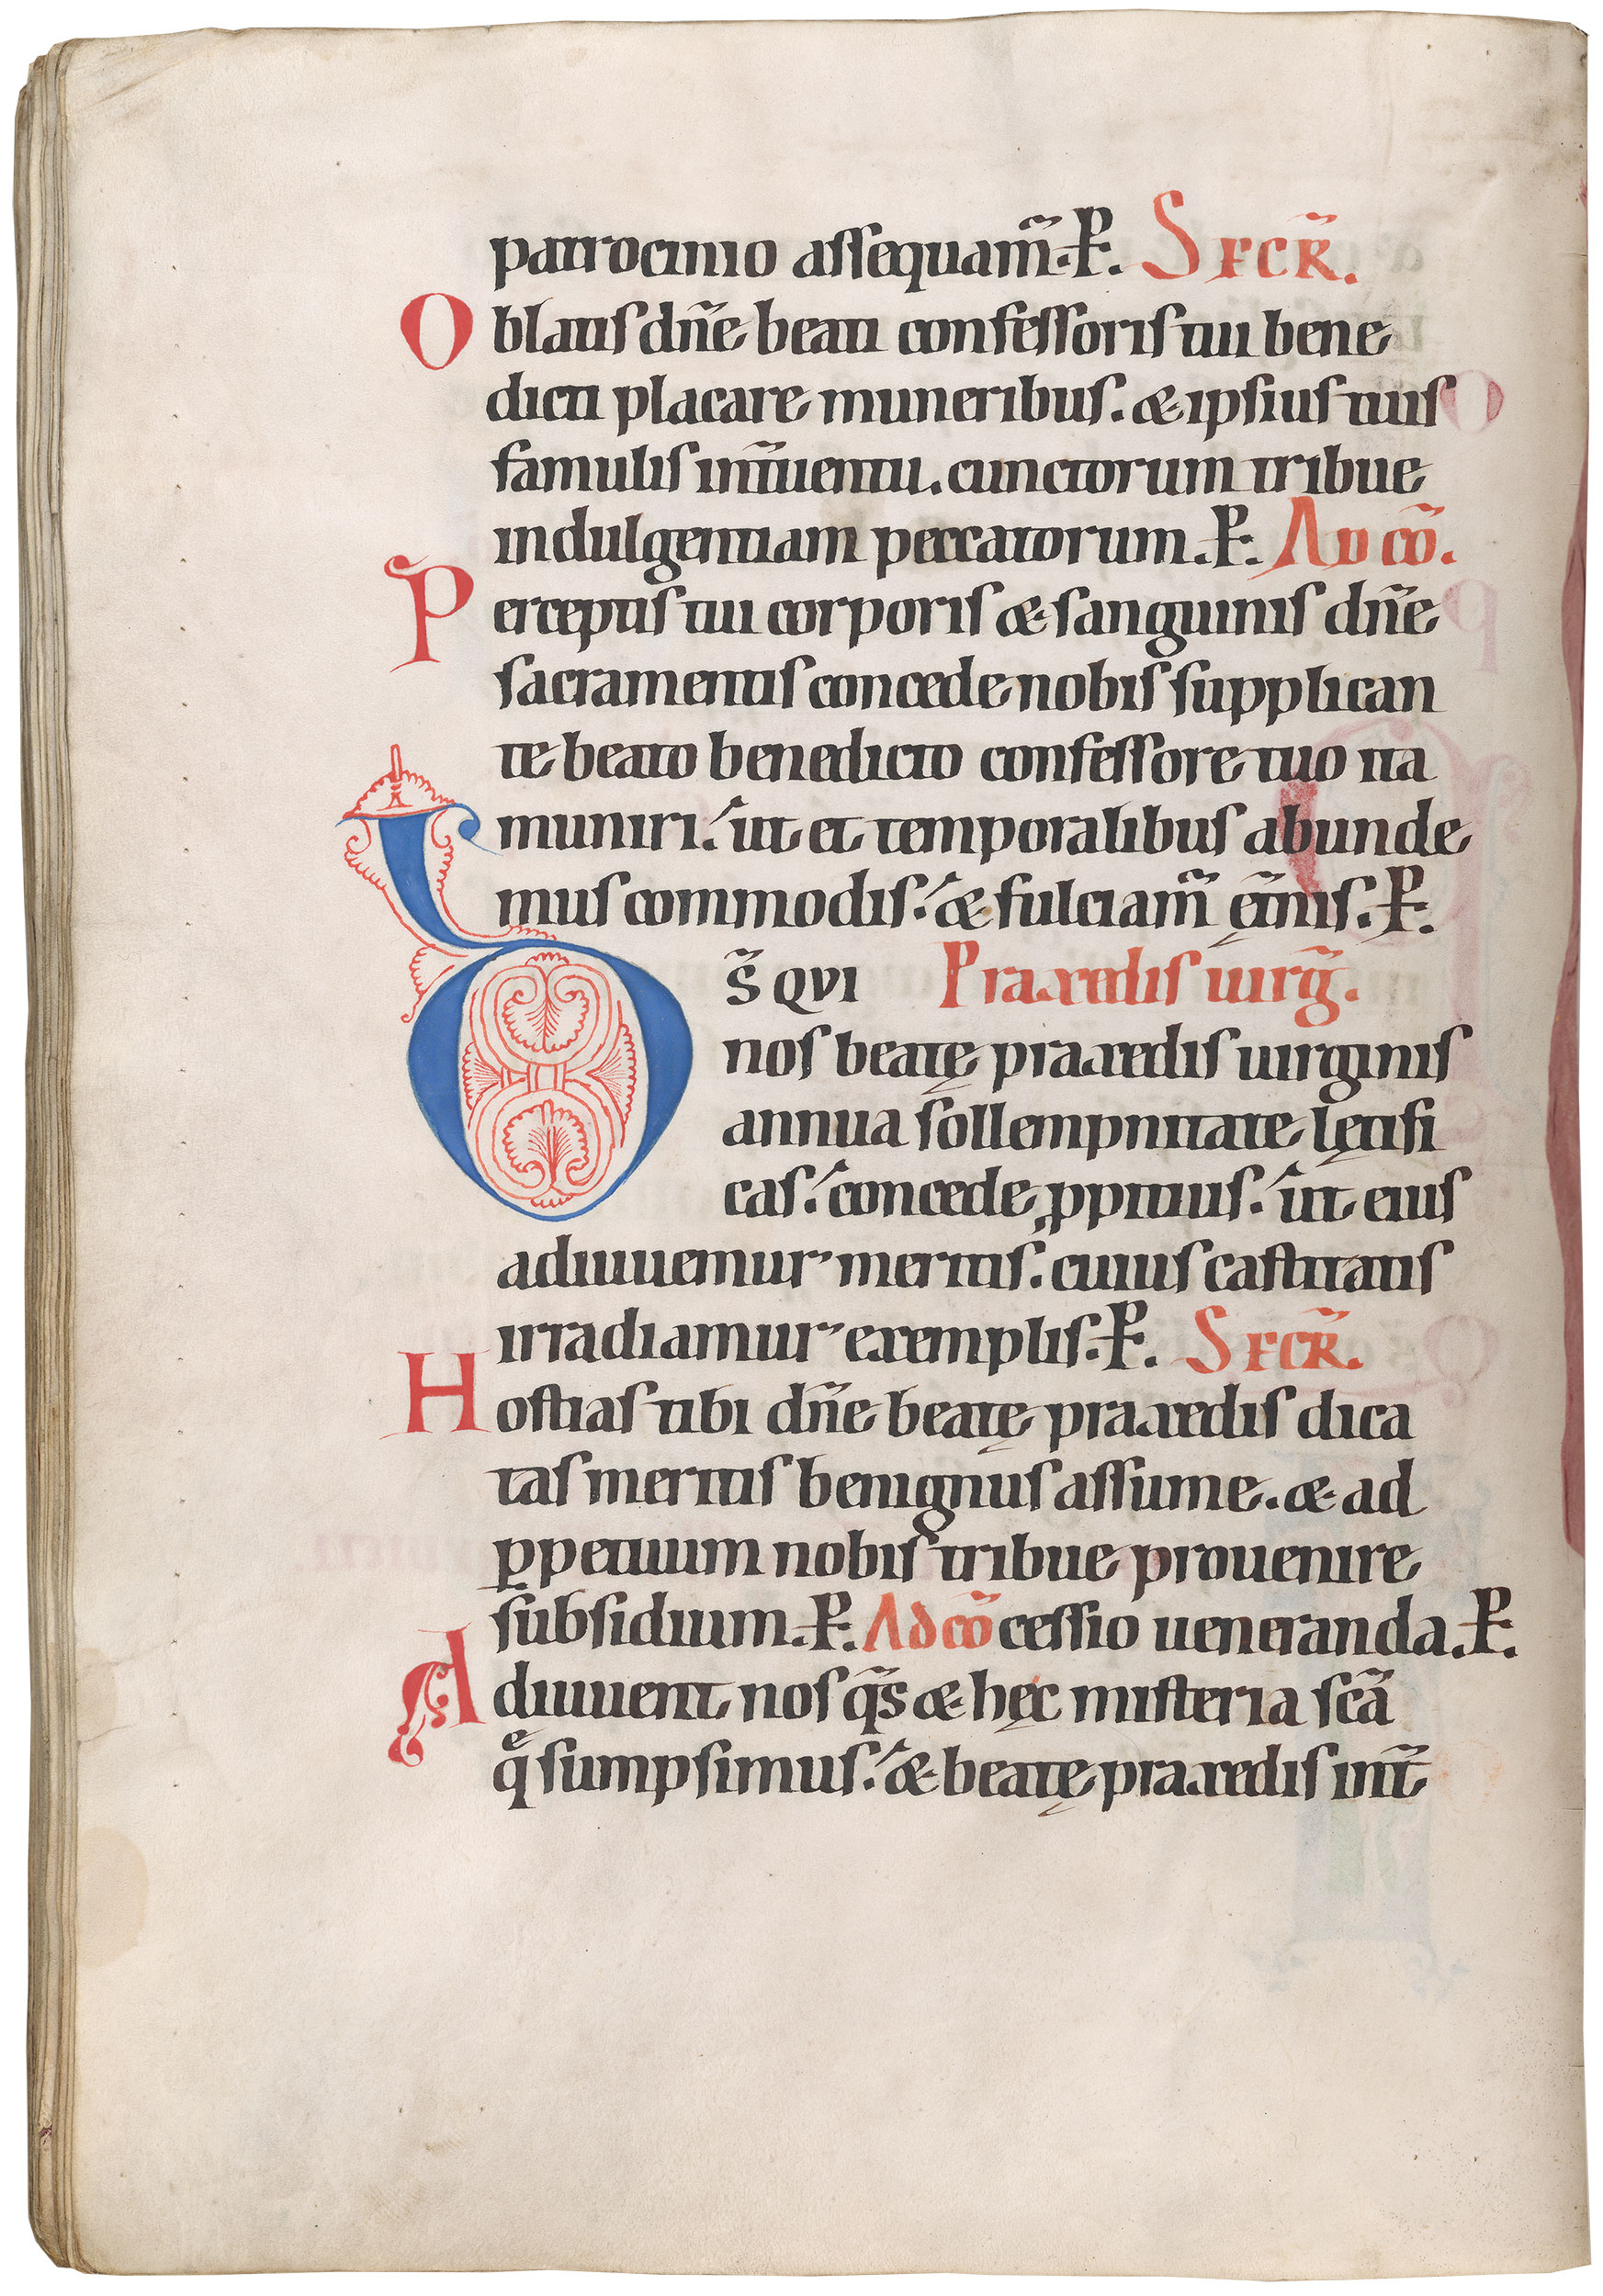 patrocinio assequam̃. P̵. SECR̃.
Oblatis dñe beati confessoris tui bene
dicti placare muneribus. & ipsius tuis
famulis int̃uentu. cunctorum tribue
indulgentiam peccatorum. P̵. AD cõ.
Perceptis tui corporis & sanguinis dñe
sacramentis concede nobis supplican
te beato benedicto confessore tuo ita
muniri. ut et temporalibus abunde
mus commodis. & fulciam̃ ęt̃nis. P̵.
Ds̃ QVI Praxedis uirg̃.
nos beatę praxedis uirginis
annua sollempnitate lętifi
cas. concede ꝓpitius. ut eius
adiuuemur meritis. cuius castitatis
irradiamur exemplis. P̵. SECR̃.
Hostias tibi dñe beatę praxedis dica
tas meritis benignus assume. & ad
ꝑpetuum nobis tribue prouenire
subsidium. P̵. Ad cõ cessio ueneranda. P̵.
Adiuuent nos q̃s & hęc misteria scã
qͤ sumpsimus. & beatę praxedis int̃